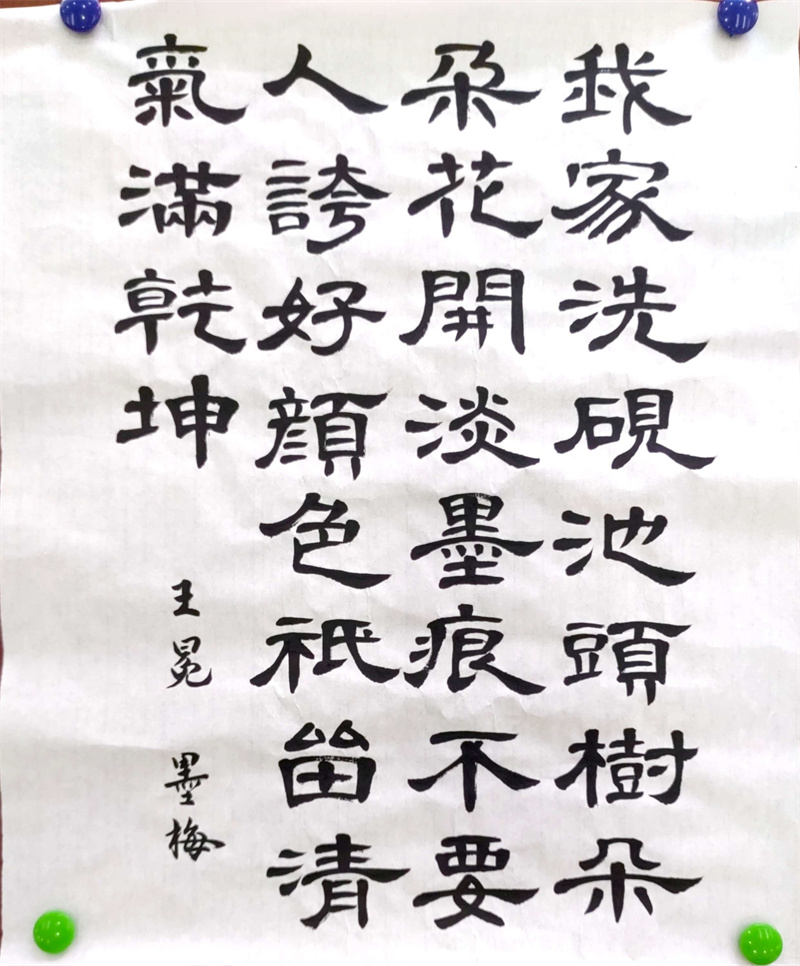 我家洗硯池頭樹朵
朵花開淡墨痕不要
人誇好顔色祇留清
氣滿乾坤
王冕 墨梅